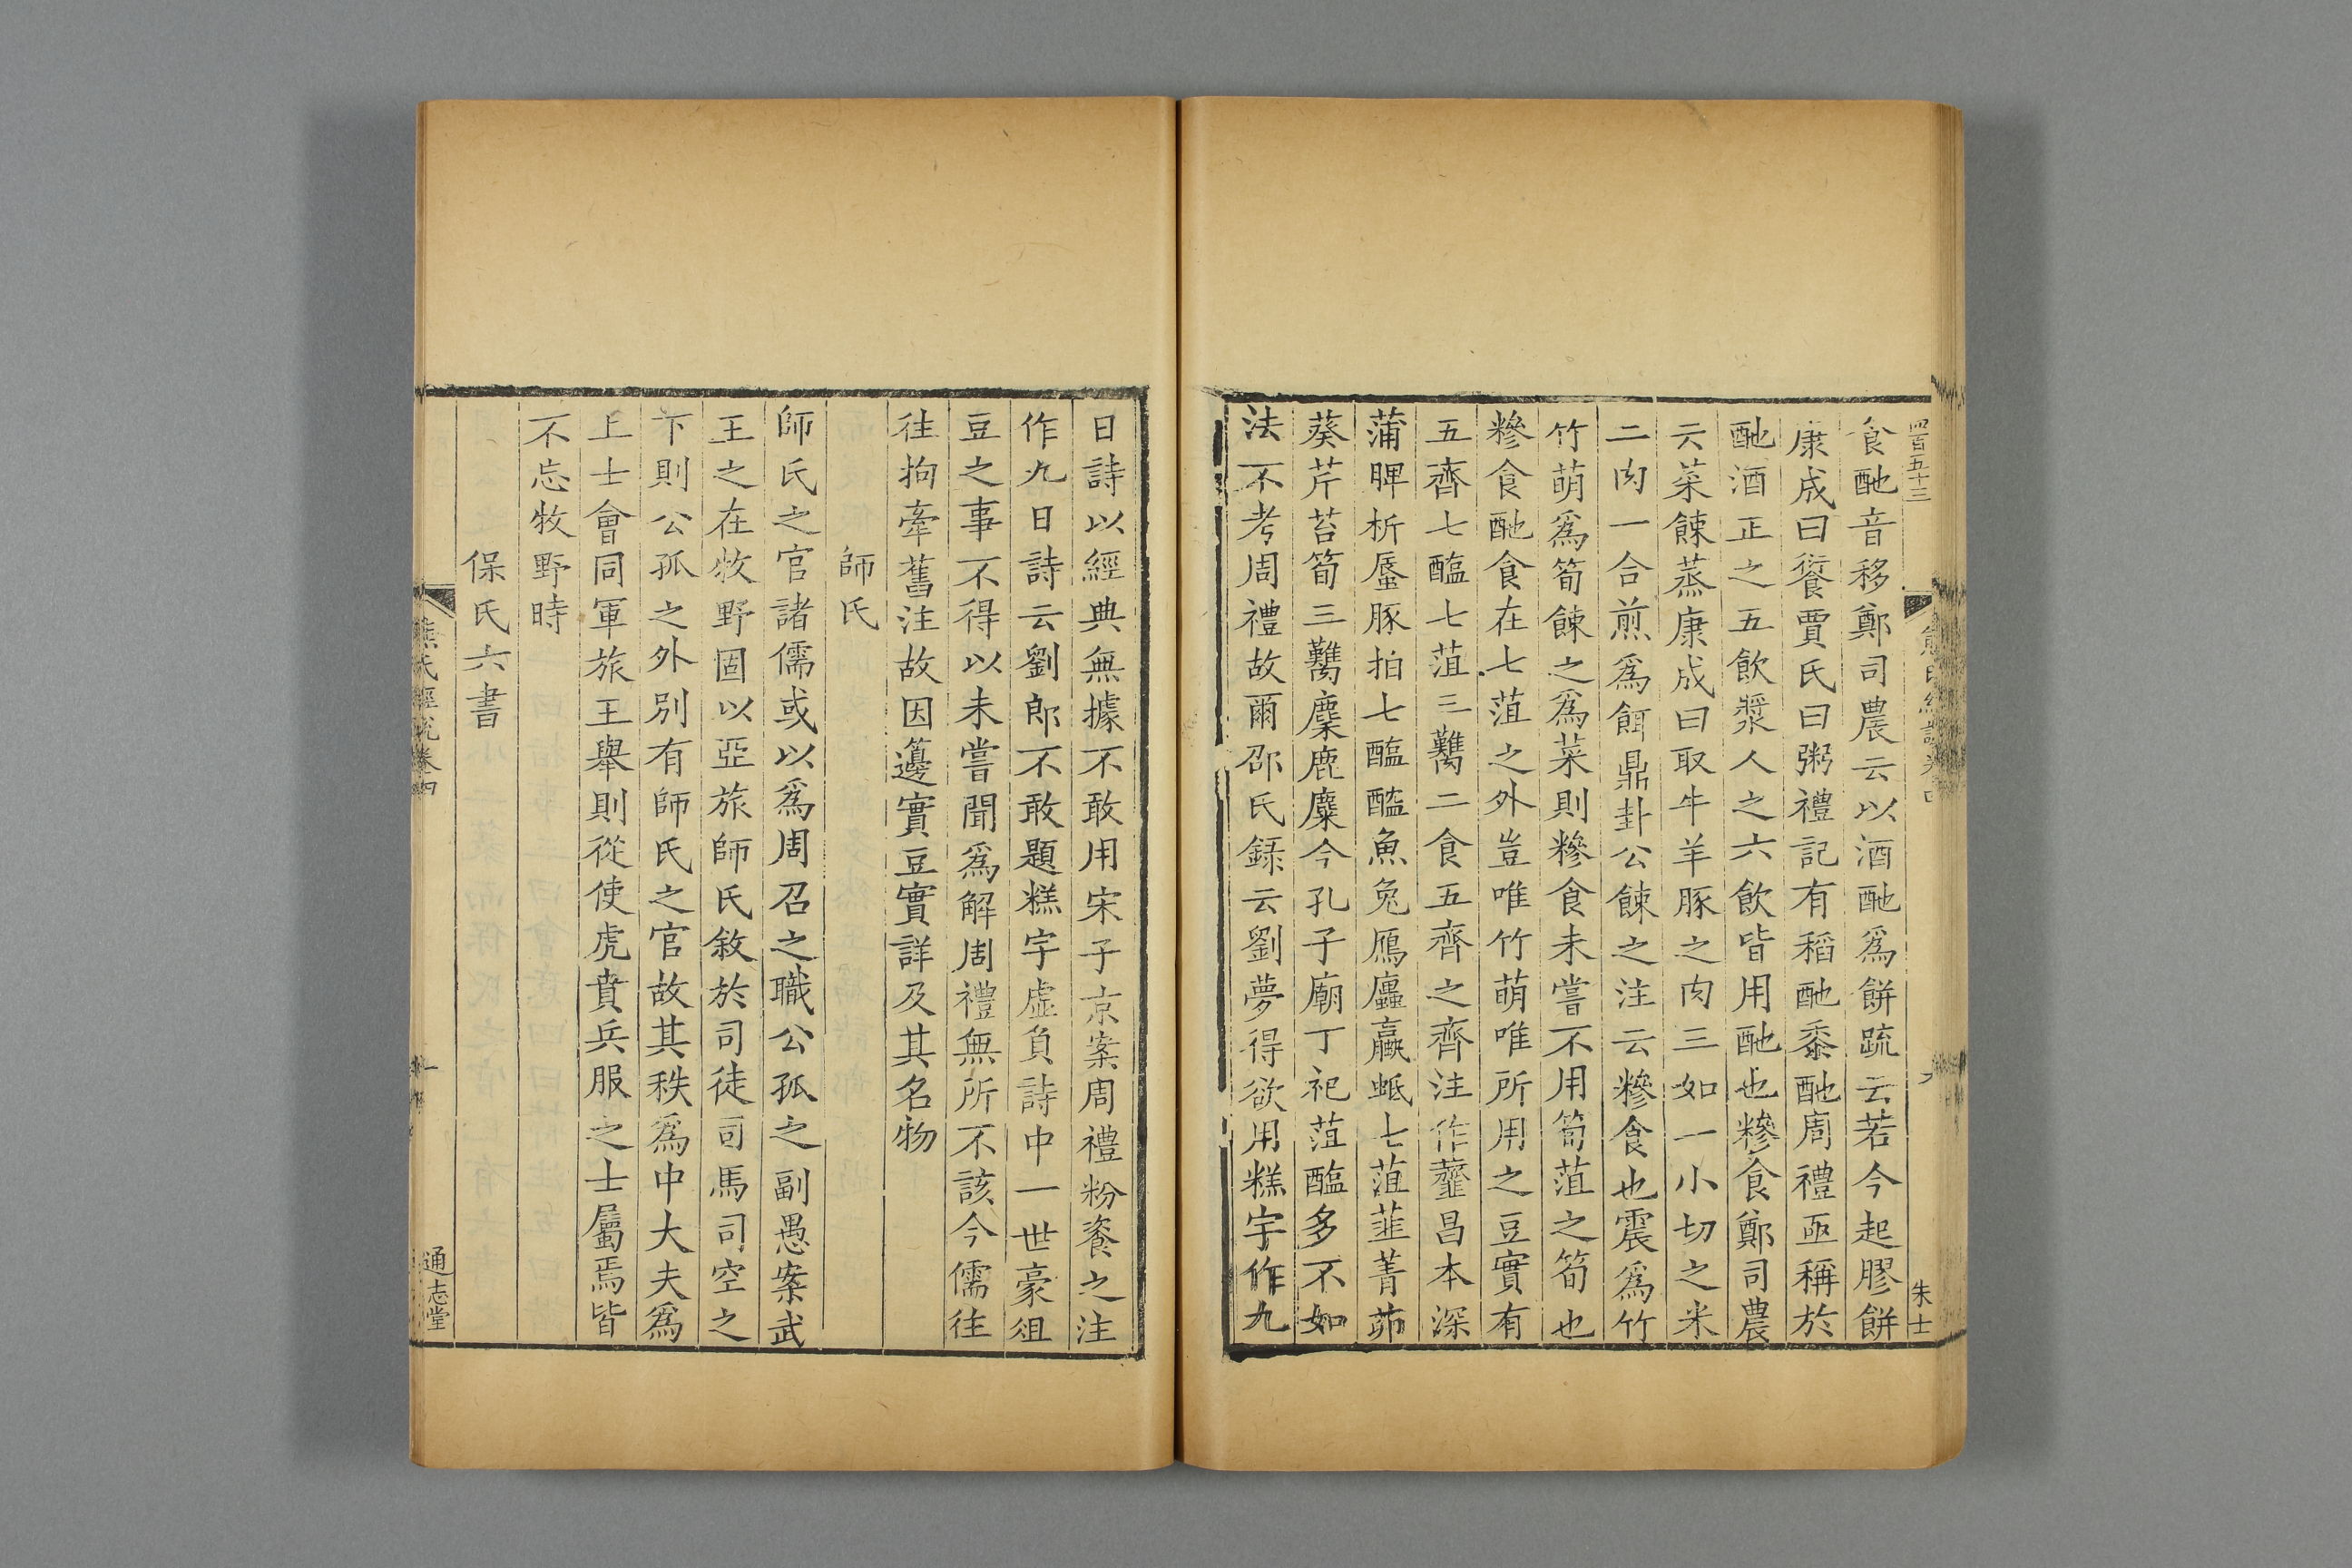 四百五十三
食酏音移鄭司農云以酒酏爲餅疏云若今起膠餅
康成曰餈賈氏曰粥禮記有稻酏黍酏周禮亟稱於
酏酒正之五飲漿人之六飲皆用酏也糝食鄭司農
云菜餗蒸康成曰取牛羊豚之肉三如一小切之米
二肉一合煎爲餌鼎卦公餗之注云糝食也震爲竹
竹萌爲筍餗之爲菜則糝食未嘗不用筍菹之筍也
糝食酏食在七菹之外豈唯竹萌唯所用之豆實有
五齊七醢七菹三臡二食五齊之齊注作齏昌本深
蒲脾析蜃豚拍七醢醓魚兔鴈蠯蠃蚳七菹韭菁茆
葵芹苔筍三臡麋鹿麇今孔子廟丁祀菹醢多不如
法不考周禮故爾邵氏錄云劉夢得欲用糕字作九
朱士
日詩以經典無據不敢用宋子京案周禮粉餈之注
作九日詩云劉郎不敢題糕字虛負詩中一世豪俎
豆之事不得以未嘗聞爲解周禮無所不該今儒往
往拘牽舊注故因籩實豆實詳及其名物
師氏
師氏之官諸儒或以爲周召之職公孤之副愚案武
王之在牧野固以亞旅師氏敘於司徒司馬司空之
下則公孤之外別有師氏之官故其秩爲中大夫爲
上士會同軍旅王舉則從使虎賁兵服之士屬焉皆
不忘牧野時
保氏六書
熊氏經說卷四
通志堂